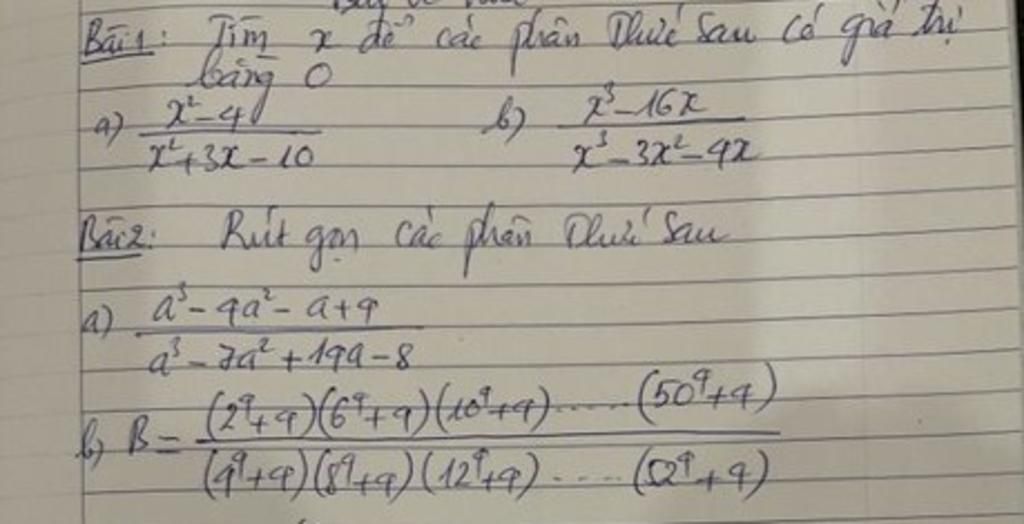 Bài 1: Tìm x để các phân thức sau có giá trị
bằng 0
a) (x²-4)/(x²+3x-10) b) (x³-16x)/(x³-3x²-4x)
Bài 2: Rút gọn các phân thức sau
a) (a³-4a²-a+4)/(a³-7a²+14a-8)
b) B = ((2⁴+4)(6⁴+4)(10⁴+4)......(50⁴+4))/((4⁴+4)(8⁴+4)(12⁴+4).....(52⁴+4))